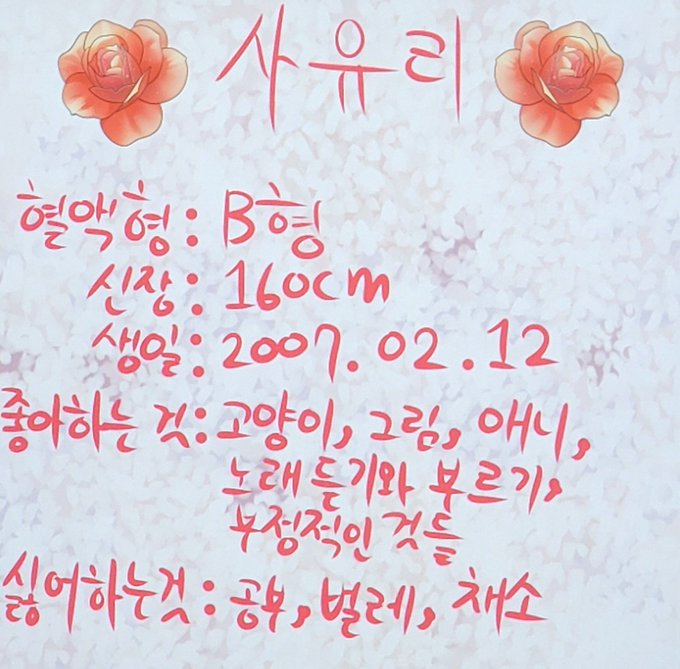 사유리
혈액형: B형
신장: 160cm
생일: 2007.02.12
좋아하는 것: 고양이, 그림, 애니,
노래 듣기와 부르기,
부정적인 것들
싫어하는것: 공부, 벌레, 채소